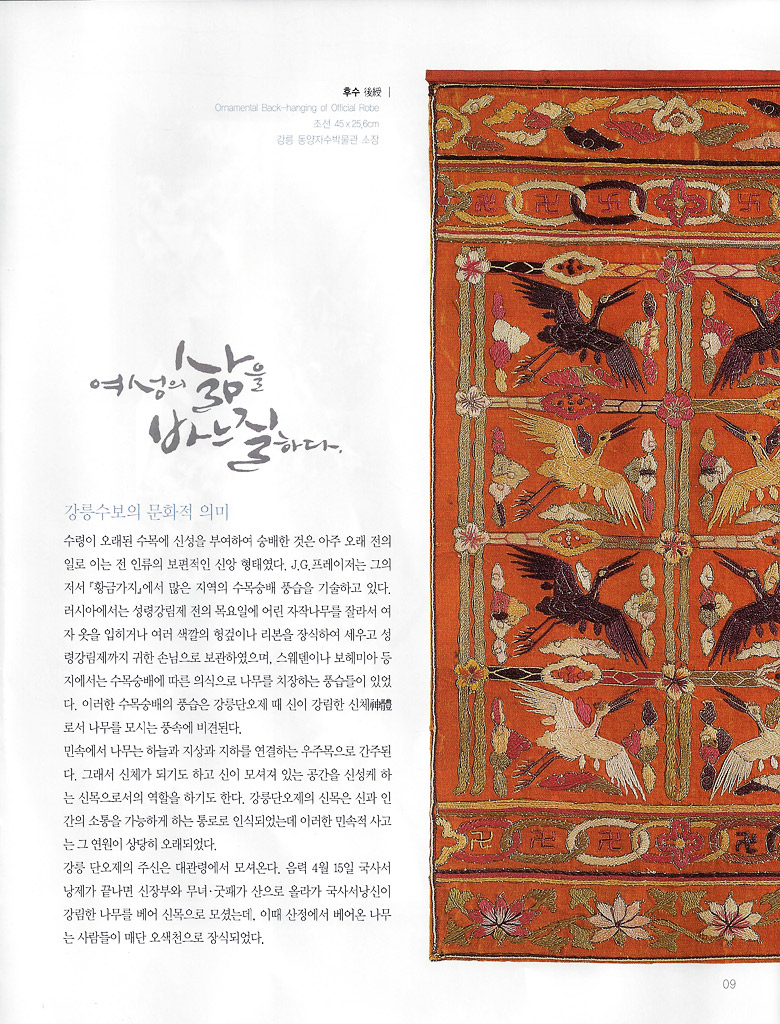 후수 後綬
Ornamental Back-hanging of Official Robe
조선 45×25.6cm
강릉 동양자수박물관 소장
여성의 삶을
바느질하다.
강릉수보의 문화적 의미
수령이 오래된 수목에 신성을 부여하여 숭배한 것은 아주 오래 전의
일로 이는 전 인류의 보편적인 신앙 형태였다. J.G.프레이저는 그의
저서 『황금가지』에서 많은 지역의 수목숭배 풍습을 기술하고 있다.
러시아에서는 성령강림제 전의 목요일에 어린 자작나무를 잘라서 여
자 옷을 입히거나 여러 색깔의 헝겊이나 리본을 장식하여 세우고 성
령강림제까지 귀한 손님으로 보관하였으며, 스웨덴이나 보헤미아 등
지에서는 수목숭배에 따른 의식으로 나무를 치장하는 풍습들이 있었
다. 이러한 수목숭배의 풍습은 강릉단오제 때 신이 강림한 신체神體
로서 나무를 모시는 풍속에 비견된다.
민속에서 나무는 하늘과 지상과 지하를 연결하는 우주목으로 간주된
다. 그래서 신체가 되기도 하고 신이 모셔져 있는 공간을 신성케 하
는 신목으로서의 역할을 하기도 한다. 강릉단오제의 신목은 신과 인
간의 소통을 가능하게 하는 통로로 인식되었는데 이러한 민속적 사고
는 그 연원이 상당히 오래되었다.
강릉 단오제의 주신은 대관령에서 모셔온다. 음력 4월 15일 국사서
낭제가 끝나면 신장부와 무녀·굿패가 산으로 올라가 국사서낭신이
강림한 나무를 베어 신목으로 모셨는데, 이때 산정에서 베어온 나무
는 사람들이 매단 오색천으로 장식되었다.
卍 卍 卐 卍
卍 卍 卍 卍
09